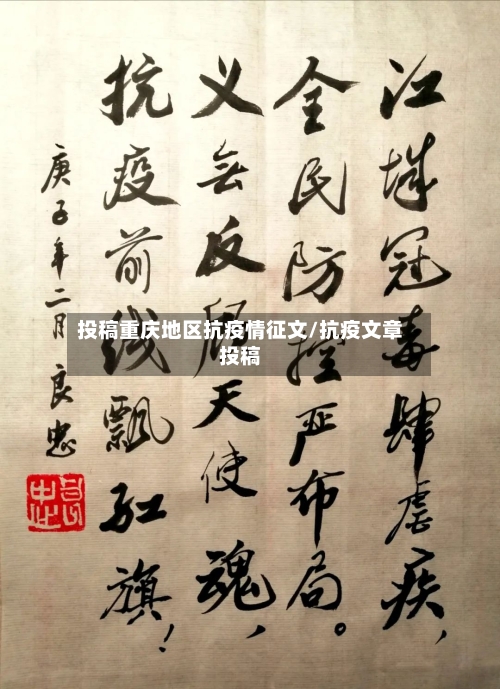 江城冠毒肆虐疾，
全民防控严布局。
义无反顾天使魂，
抗疫前线飘红旗！
庚子年二月良忠
投稿重庆地区抗疫情征文/抗疫文章
投稿